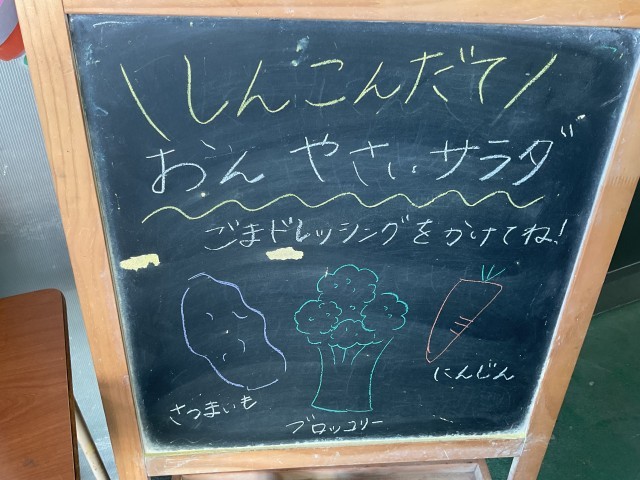 \しんこんだて/
おんやさいサラダ
ごまドレッシングをかけてね!
さつまいも
ブロッコリー
にんじん